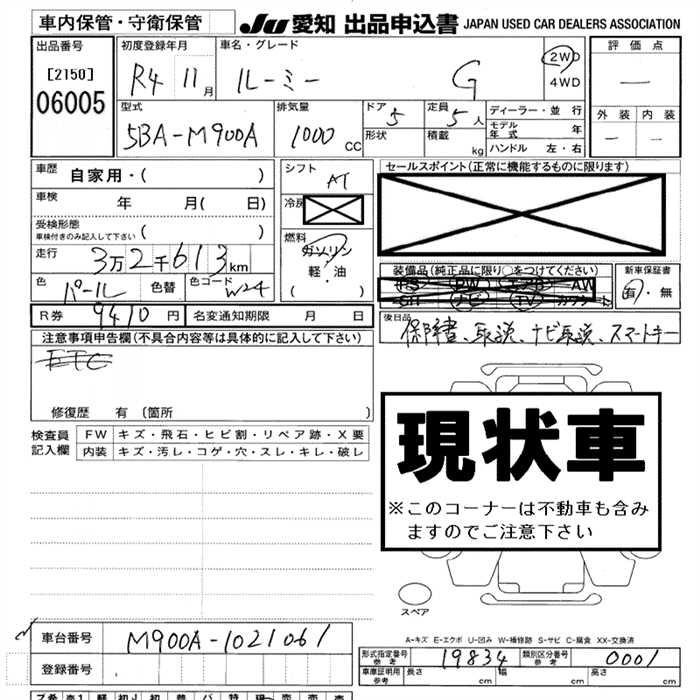 車内保管・守衛保管
JU 愛知 出品申込書 JAPAN USED CAR DEALERS ASSOCIATION
出品番号
[2150]
06005
初度登録年月
R4 11月
車名・グレード
ルーミー G
2WD
4WD
評価点
—
外装 内装
— —
型式
5BA-M900A
排気量
1000 CC
ドア 5
形状
定員 5人
積載 kg
ディーラー・並行
モデル年式 年
ハンドル 左・右
車歴 自家用・( )
車検 年 月( 日)
受検形態
車検付きのみ記入して下さい ( )
走行 3万2千613km
色 パール 色替 色コード W24
シフト AT
冷房
燃料
ガソリン
軽・油
( )
セールスポイント(正常に機能するものに限ります)
装備品(純正品に限り○をつけてください)
PS PW エアB AW
SR ナビ TV カワシート
新車保証書
有・無
R券 9410円 名変通知期限 月 日
後日品
保証書、取説、ナビ取説、スマートキー
注意事項申告欄(不具合内容等は具体的に記入して下さい)
ETC
修復歴 有(箇所 )
検査員記入欄
FW キズ・飛石・ヒビ割・リペア跡・X要
内装 キズ・汚レ・コゲ・穴・スレ・キレ・破レ
現状車
※このコーナーは不動車も含み
ますのでご注意下さい
スペア
A-キズ E-エクボ U-凹み W-補修跡 S-サビ C-腐食 XX-交換済
車台番号 M900A-1021061
登録番号
形式指定番号 参考 19834 類別区分番号 参考 0001
車庫証明用 参考 長さ cm 幅 cm 高さ cm